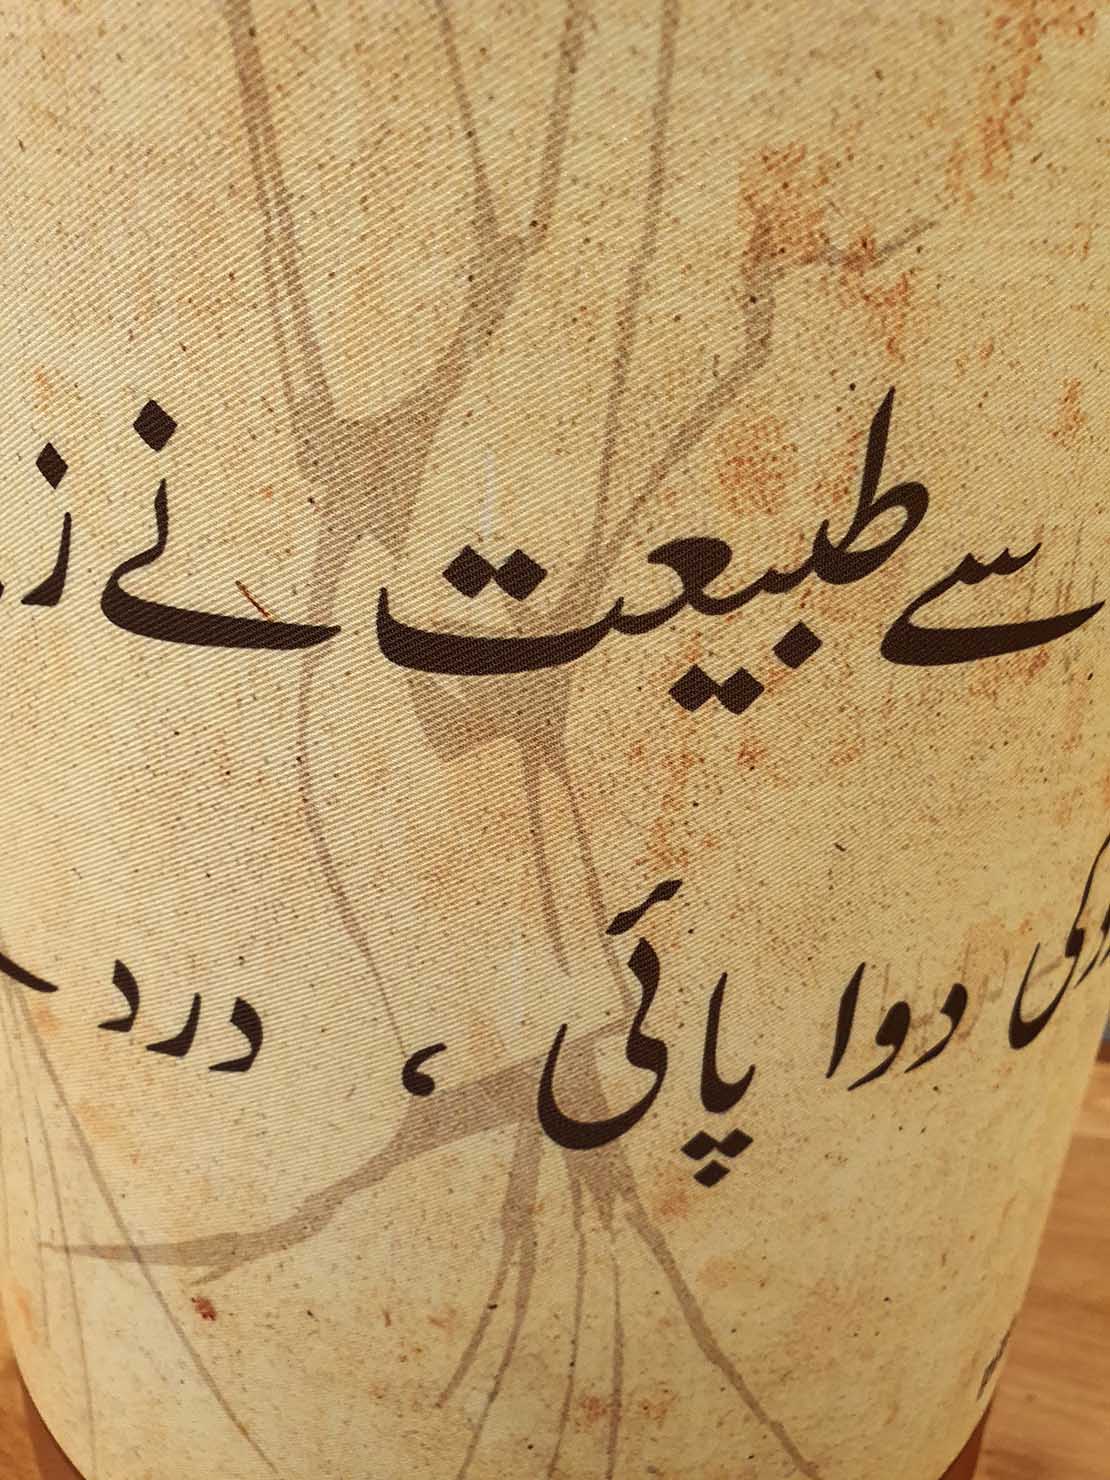 سے طبیعت نے ز
کی دوا پائی ، درد